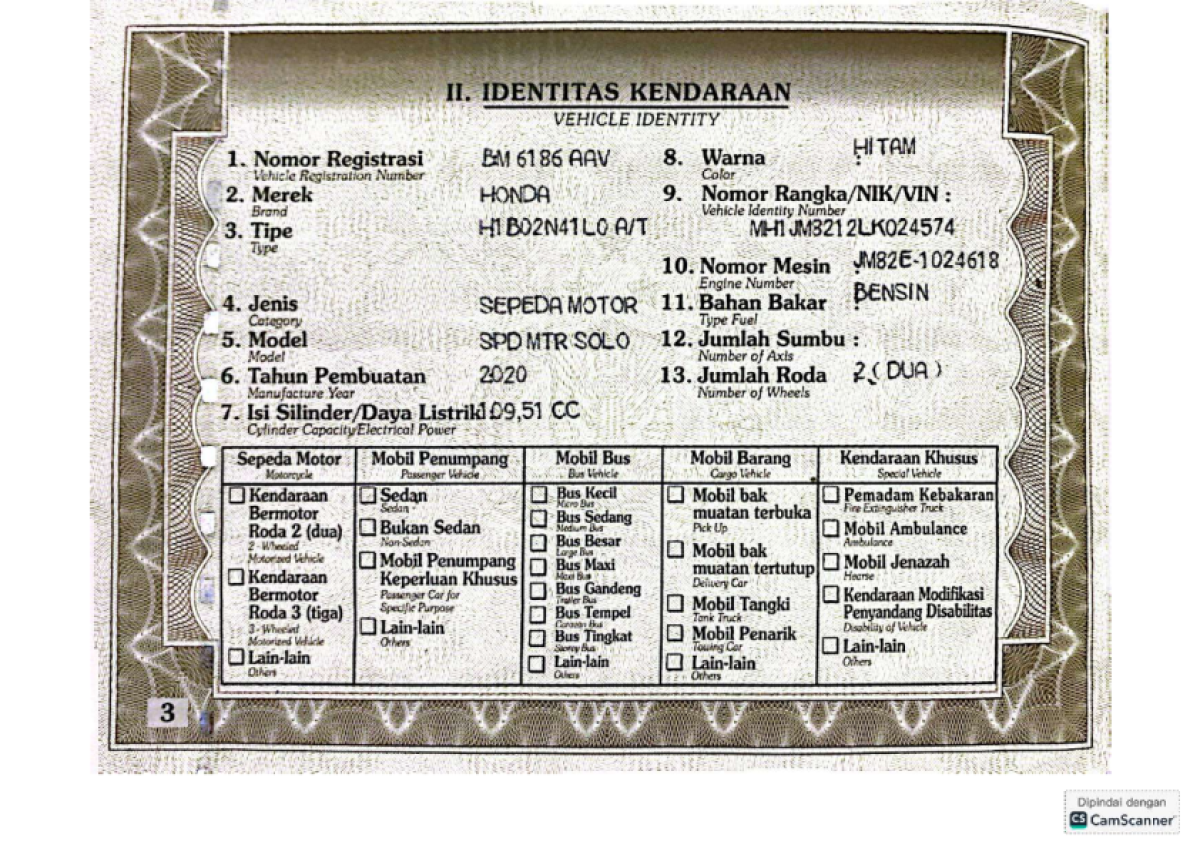 II. IDENTITAS KENDARAAN
VEHICLE IDENTITY
1. Nomor Registrasi BM 6186 AAV
Vehicle Registration Number
2. Merek HONDA
Brand
3. Tipe H1B02N41L0 A/T
Type
4. Jenis SEPEDA MOTOR
Category
5. Model SPD MTR SOLO
Model
6. Tahun Pembuatan 2020
Manufacture Year
7. Isi Silinder/Daya Listrik 109,51 CC
Cylinder Capacity/Electrical Power
8. Warna : HITAM
Color
9. Nomor Rangka/NIK/VIN :
Vehicle Identity Number
MH1JM8212LK024574
10. Nomor Mesin : JM82E-1024618
Engine Number
11. Bahan Bakar : BENSIN
Type Fuel
12. Jumlah Sumbu :
Number of Axis
13. Jumlah Roda : 2 ( DUA )
Number of Wheels
Sepeda Motor
Motorcycle
Kendaraan
Bermotor
Roda 2 (dua)
2 - Wheeled
Motorized Vehicle
Kendaraan
Bermotor
Roda 3 (tiga)
3 - Wheeled
Motorized Vehicle
Lain-lain
Others
Mobil Penumpang
Passenger Vehicle
Sedan
Sedan
Bukan Sedan
Non-Sedan
Mobil Penumpang
Keperluan Khusus
Passenger Car for
Specific Purpose
Lain-lain
Others
Mobil Bus
Bus Vehicle
Bus Kecil
Micro Bus
Bus Sedang
Medium Bus
Bus Besar
Large Bus
Bus Maxi
Maxi Bus
Bus Gandeng
Trailer Bus
Bus Tempel
Caravan Bus
Bus Tingkat
Storey Bus
Lain-lain
Others
Mobil Barang
Cargo Vehicle
Mobil bak
muatan terbuka
Pick Up
Mobil bak
muatan tertutup
Delivery Car
Mobil Tangki
Tank Truck
Mobil Penarik
Towing Car
Lain-lain
Others
Kendaraan Khusus
Special Vehicle
Pemadam Kebakaran
Fire Extinguisher Truck
Mobil Ambulance
Ambulance
Mobil Jenazah
Hearse
Kendaraan Modifikasi
Penyandang Disabilitas
Disability of Vehicle
Lain-lain
Others
3
Dipindai dengan
CS CamScanner